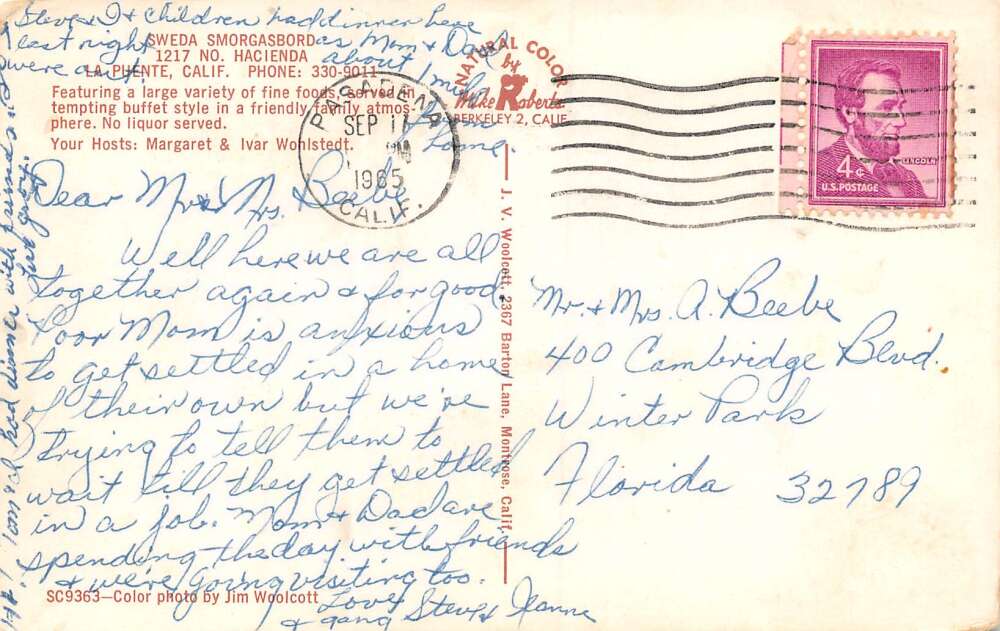 Steve & I & children had dinner here
last night as Mom & Dad
were out. about 1 mile
from
home.
SWEDA SMORGASBORD
1217 NO. HACIENDA
LA PUENTE, CALIF. PHONE: 330-9011
Featuring a large variety of fine foods, served in
tempting buffet style in a friendly family atmos-
phere. No liquor served.
Your Hosts: Margaret & Ivar Wohlstedt.
NATURAL COLOR
by
Mike Roberts
BERKELEY 2, CALIF.
PASADENA
SEP 11
PM
1965
CALIF.
LINCOLN
4¢
U.S. POSTAGE
Dear Mr. & Mrs. Beebe
Well here we are all
together again & for good.
Poor Mom is anxious
to get settled in a home
of their own but we're
trying to tell them to
wait till they get settled
in a job. Mom & Dad are
spending the day with friends
& we're going visiting too.
Love,
& gang Steve & Jeanne
had dinner with friends
J. V. Woolcott, 2367 Barton Lane, Montrose, Calif.
Mr. & Mrs. A. Beebe
400 Cambridge Blvd.
Winter Park
Florida 32789
SC9363—Color photo by Jim Woolcott